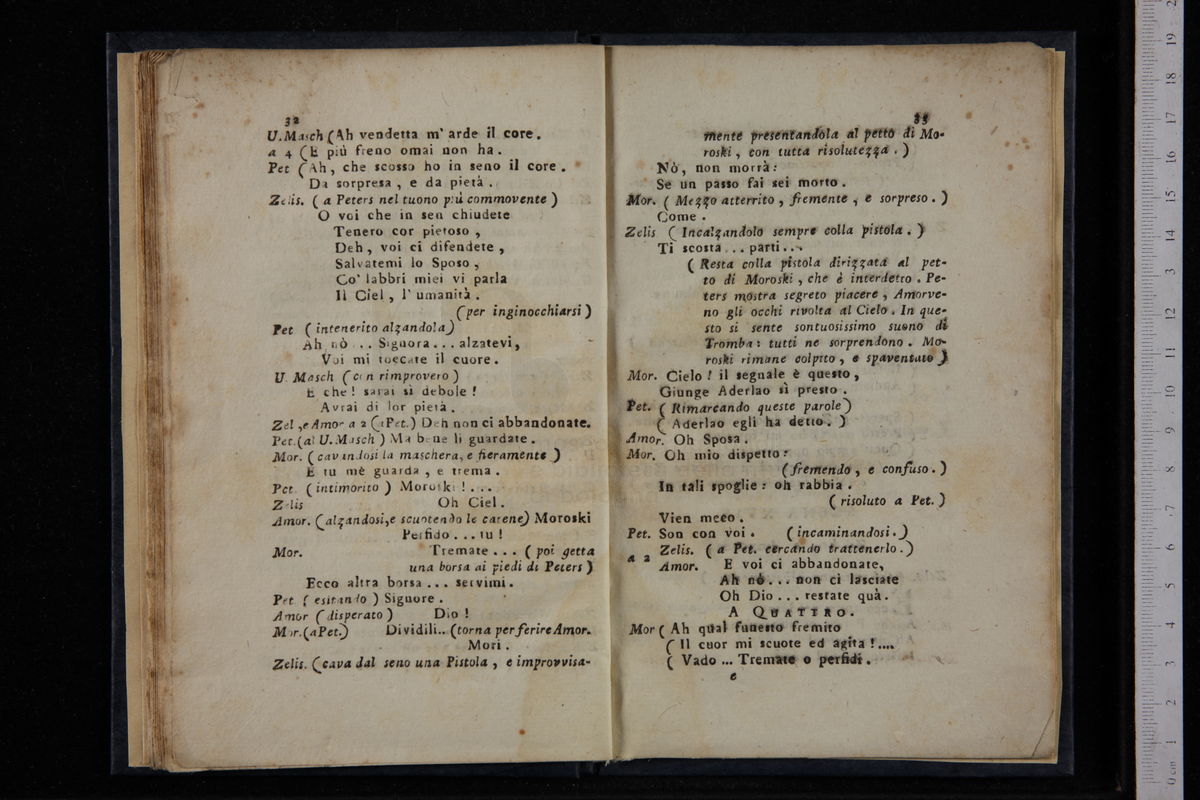 32
U. Masch (Ah vendetta m' arde il core.
a 4 (E più freno omai non ha.
Pet (Ah, che scosso ho in seno il core.
Da sorpresa, e da pietà.
Zelis. (a Peters nel tuono più commovente)
O voi che in sen chiudete
Tenero cor pietoso,
Deh, voi ci difendete,
Salvatemi lo Sposo,
Co' labbri miei vi parla
Il Ciel, l' umanità.
(per inginocchiarsi)
Pet (intenerito alzandola)
Ah nò ... Signora... alzatevi,
Voi mi toccate il cuore.
U. Masch (con rimprovero)
E che! sarai sì debole!
Avrai di lor pietà.
Zel., e Amor a 2 (a Pet.) Deh non ci abbandonate.
Pet. (al U. Masch) Ma bene li guardate.
Mor. (cavandosi la maschera, e fieramente)
E tu mè guarda, e trema.
Pet. (intimorito) Moroski!....
Zelis Oh Ciel.
Amor. (alzandosi, e scuotendo le catene) Moroski
Perfido...tu!
Mor. Tremate... (poi getta
una borsa ai piedi di Peters)
Ecco altra borsa... servimi.
Pet. (esitando) Signore.
Amor (disperato) Dio!
Mor. (a Pet.) Dividili.. (torna per ferire Amor.
Mori.
Zelis. (cava dal seno una Pistola, e improvvisa-
33
mente presentandola al petto di Mo-
roski, con tutta risolutezza.)
Nò, non morrà:
Se un passo fai sei morto.
Mor. (Mezzo atterrito, fremente, e sorpreso.)
Come.
Zelis (Incalzandolo sempre colla pistola.)
Ti scosta... parti...
(Resta colla pistola dirizzata al pet-
to di Moroski, che è interdetto. Pe-
ters mostra segreto piacere, Amorve-
no gli occhi rivolta al Cielo. In que-
sto si sente sontuosissimo suono di
Tromba: tutti ne sorprendono. Mo-
roski rimane colpito, e spaventato)
Mor. Cielo! il segnale è questo,
Giunge Aderlao sì presto.
Pet. (Rimarcando queste parole)
(Aderlao egli ha detto.)
Amor. Oh Sposa.
Mor. Oh mio dispetto:
(fremendo, e confuso.)
In tali spoglie: oh rabbia.
(risoluto a Pet.)
Vien meco.
Pet. Son con voi. (incaminandosi.)
a 2 Zelis. (a Pet. cercando trattenerlo.)
Amor. E voi ci abbandonate,
Ah nò... non ci lasciate
Oh Dio... restate quà.
A QUATTRO.
Mor (Ah qual funesto fremito
(Il cuor mi scuote ed agita!....
(Vado ... Tremate o perfidi.
e